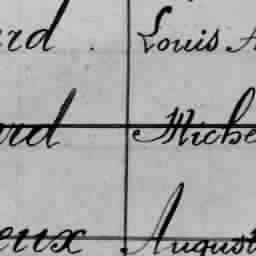 rd . Louis A
ard Miche
eux August